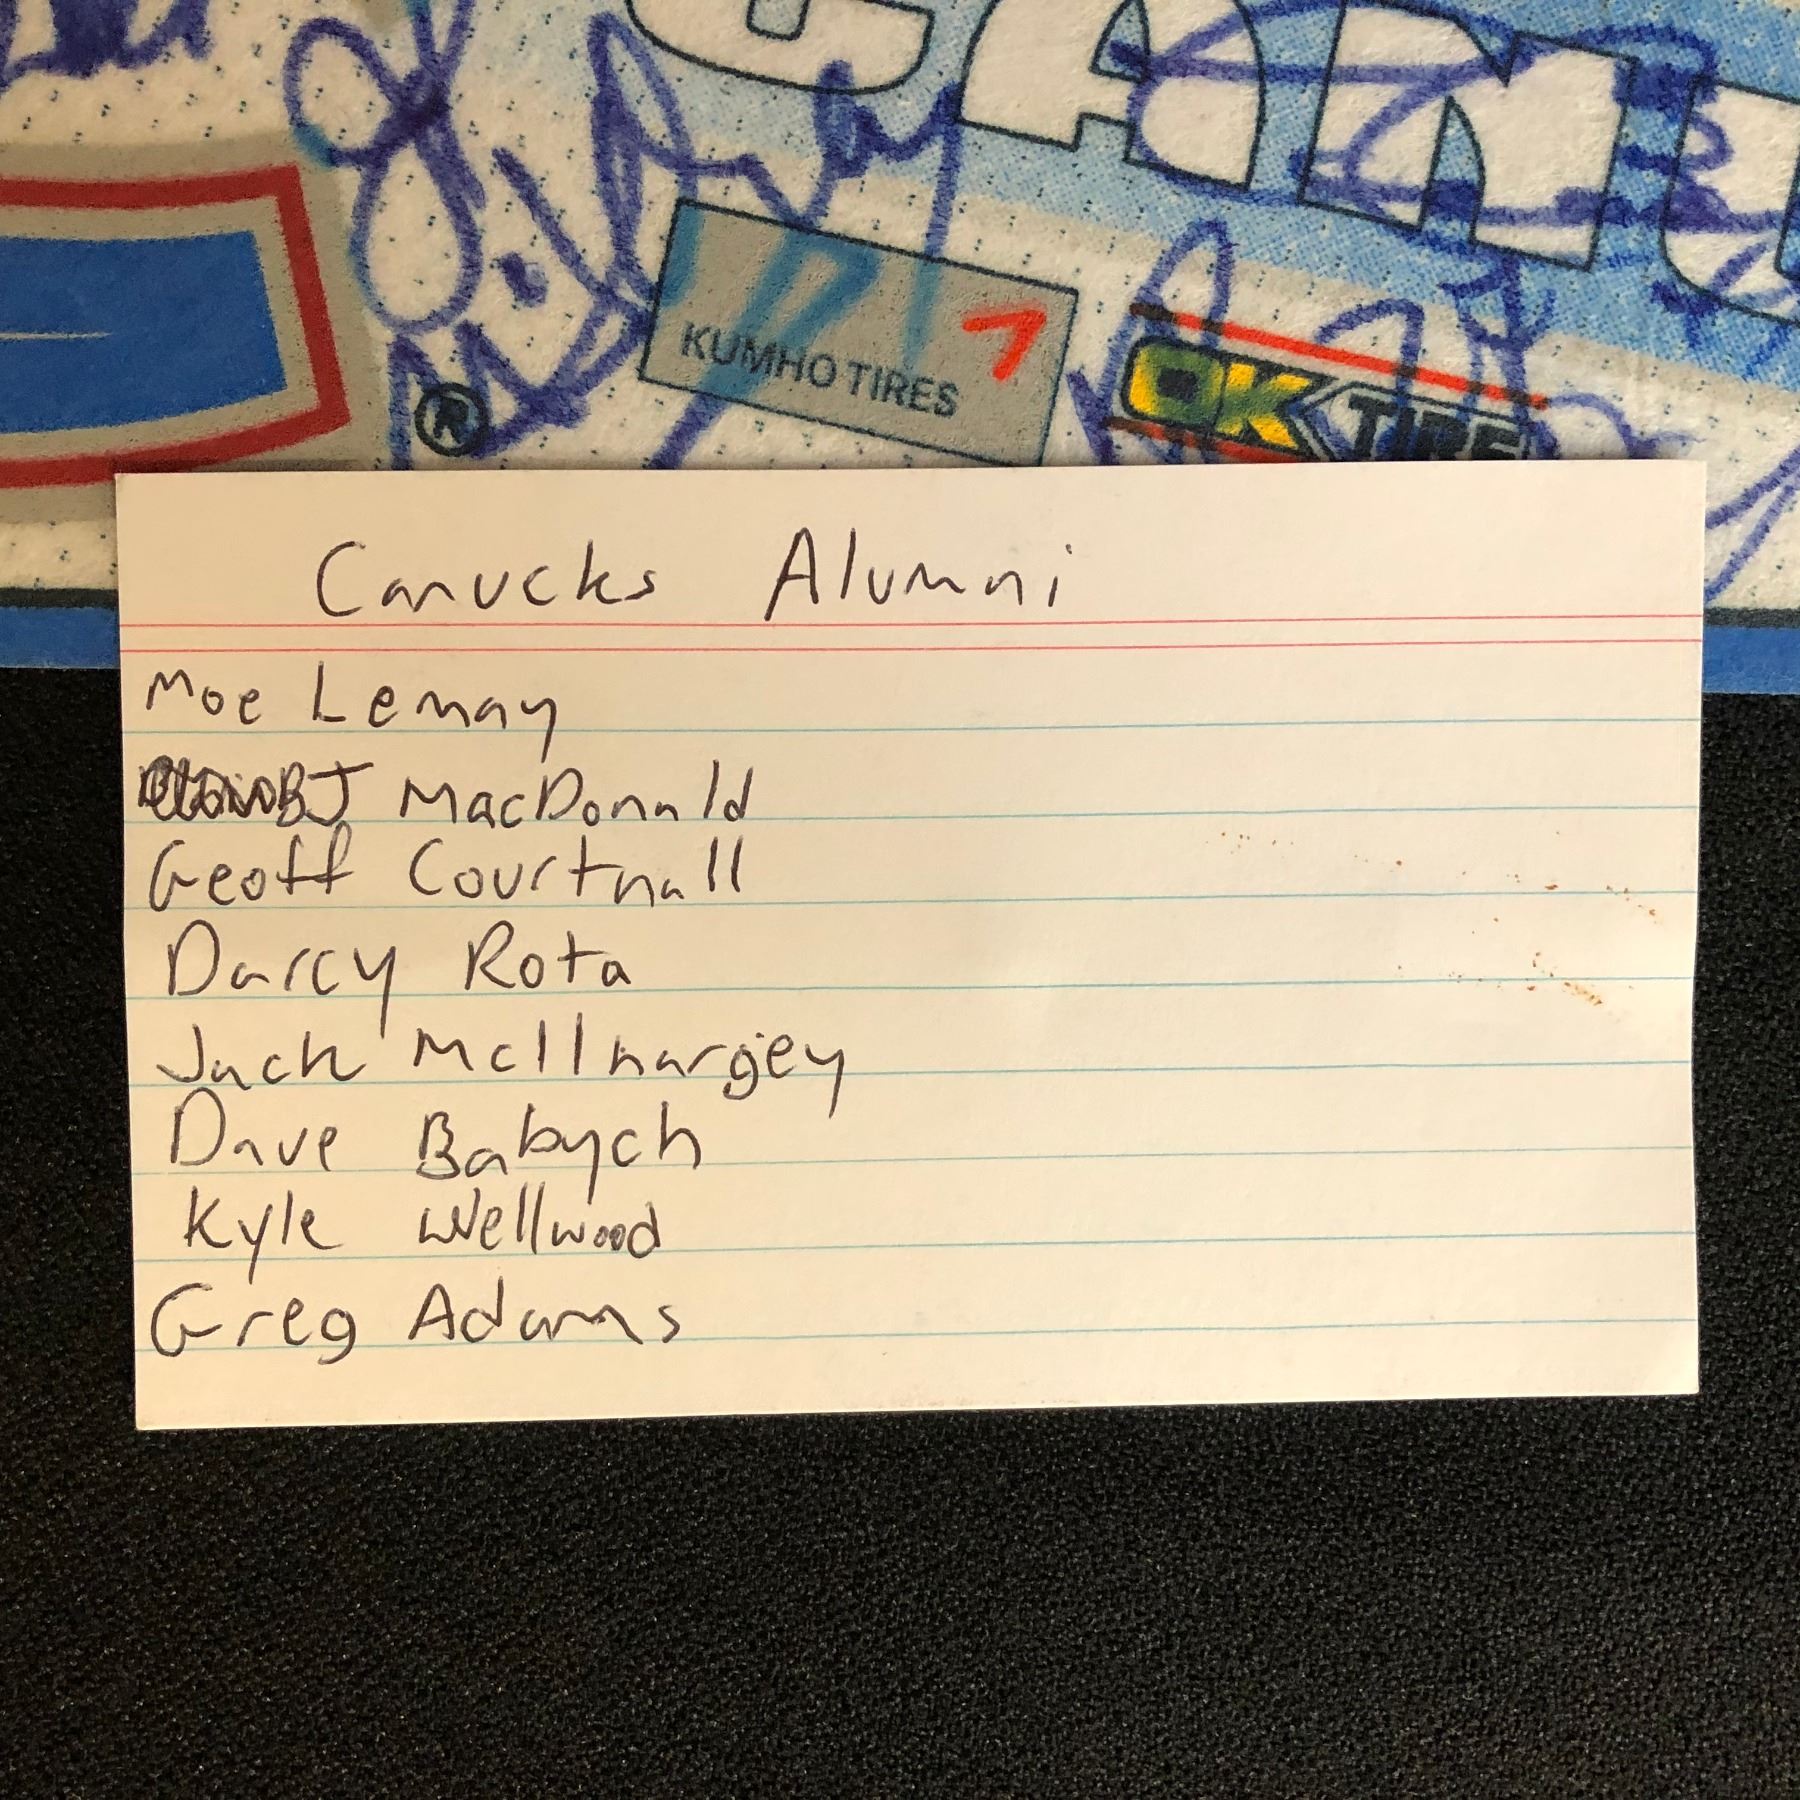 CANU
®
KUMHO TIRES
OK TIRE
Canucks Alumni
Moe Lemay
BJ MacDonald
Geoff Courtnall
Darcy Rota
Jack McIlhargey
Dave Babych
Kyle Wellwood
Greg Adams